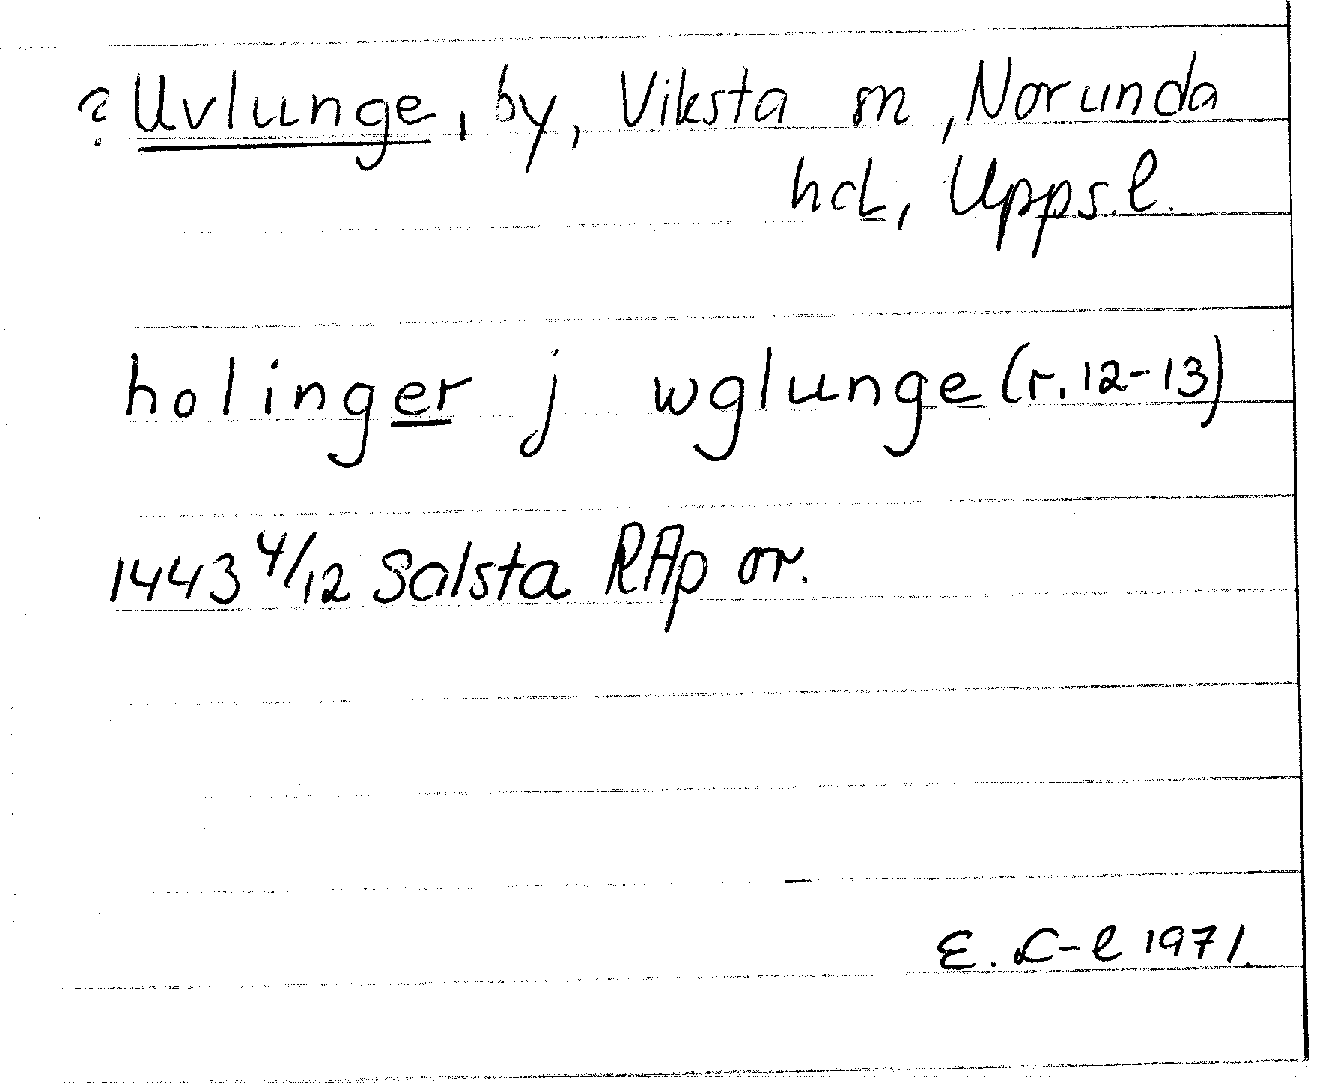 ? Uvlunge, by, Viksta sn, Norunda
hd, Upps.l.
holinger j wglunge (r. 12-13)
1443 4/12 Salsta RAp or.
E. L-l 1971.